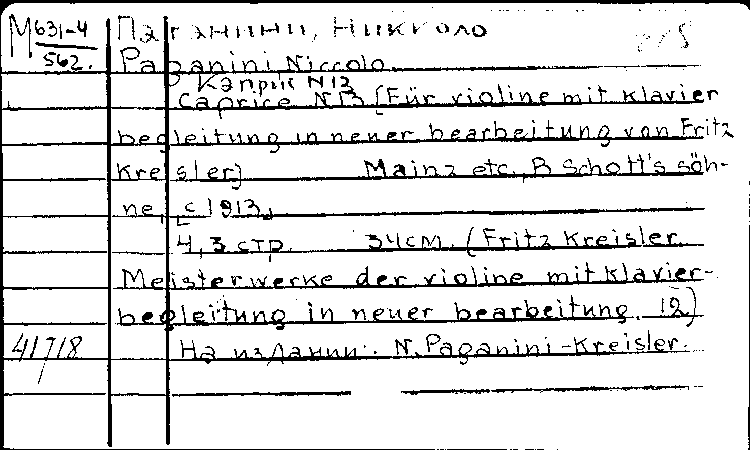 М 631-4
562.
Паганини, Никколо
Paganini, Niccolo.
Каприс N 13
Caprice N 13 [Für violine mit klavier
begleitung in neuer bearbeitung von Fritz
Kreisler] Mainz etc., B. Schott's söh-
ne, [c 1913]
4, 3 стр. 34 см. (Fritz Kreisler.
Meisterwerke der violine mit klavier-
begleitung in neuer bearbeitung. 12)
41718
На издании: N. Paganini-Kreisler.